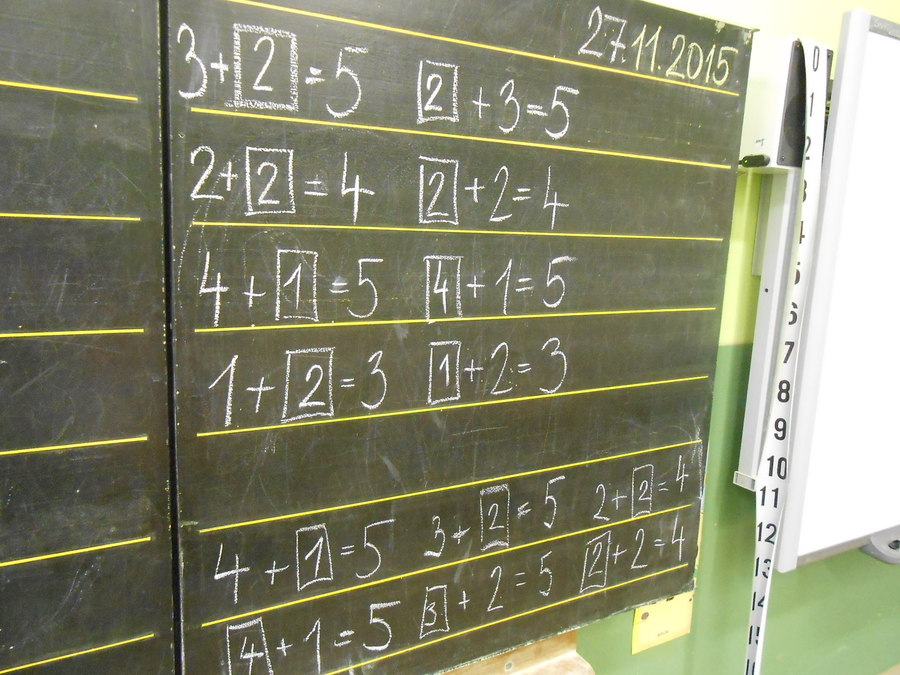 27.11.2015
3+2=5 2+3=5
2+2=4 2+2=4
4+1=5 4+1=5
1+2=3 1+2=3
4+1=5 3+2=5 2+2=4
4+1=5 3+2=5 2+2=4
0
1
2
3
4
5
6
7
8
9
10
11
12
13
14
15